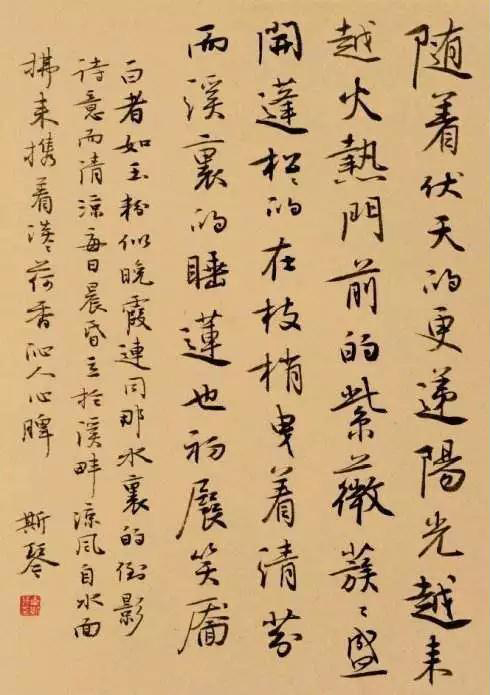 随着伏天的更递陽光越来
越火熱門前的紫薇蔟〻盛
開蓬松的在枝梢曳着清芬
而溪裏的睡蓮也初展笑靥
白者如玉粉似晚霞連同那水裏的倒影
诗意而清凉每日晨昏立於溪畔凉风自水面
拂来携着淡〻荷香沁人心脾
斯琴